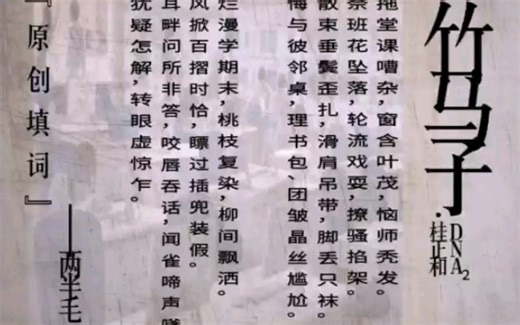 竹马子
·桂正和
DNA²
拖堂课嘈杂,窗含叶茂,恼师秃发。
祭班花坠落,轮流戏耍,撩骚掐架。
散束垂鬓歪扎,滑肩吊带,脚丢只袜。
悔与彼邻桌,理书包、团皱晶丝尴尬。
烂漫学期末,桃枝复染,柳间飘洒。
风掀百摺时恰,瞟过插兜装假。
耳畔问所非答,咬唇吞话,闻雀啼声
犹疑怎解,转眼虚惊乍。
『原创填词』
——两半毛